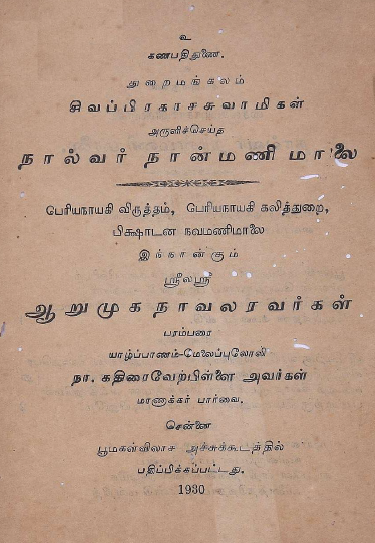 உ
கணபதிதுணை.
துறைமங்கலம்
சிவப்பிரகாசசுவாமிகள்
அருளிச்செய்த
நால்வர் நான்மணி மாலை
பெரியநாயகி விருத்தம், பெரியநாயகி கலித்துறை,
பிக்ஷாடன நவமணிமாலை
இந்நான்கும்
ஸ்ரீலஸ்ரீ
ஆறுமுகநாவலரவர்கள்
பரம்பரை
யாழ்ப்பாணம்-மேலைப்புலோலி
நா. கதிரைவேற்பிள்ளை அவர்கள்
மாணாக்கர் பார்வை.
சென்னை
பூமகள்விலாச அச்சுக்கூடத்தில்
பதிப்பிக்கப்பட்டது.
1930